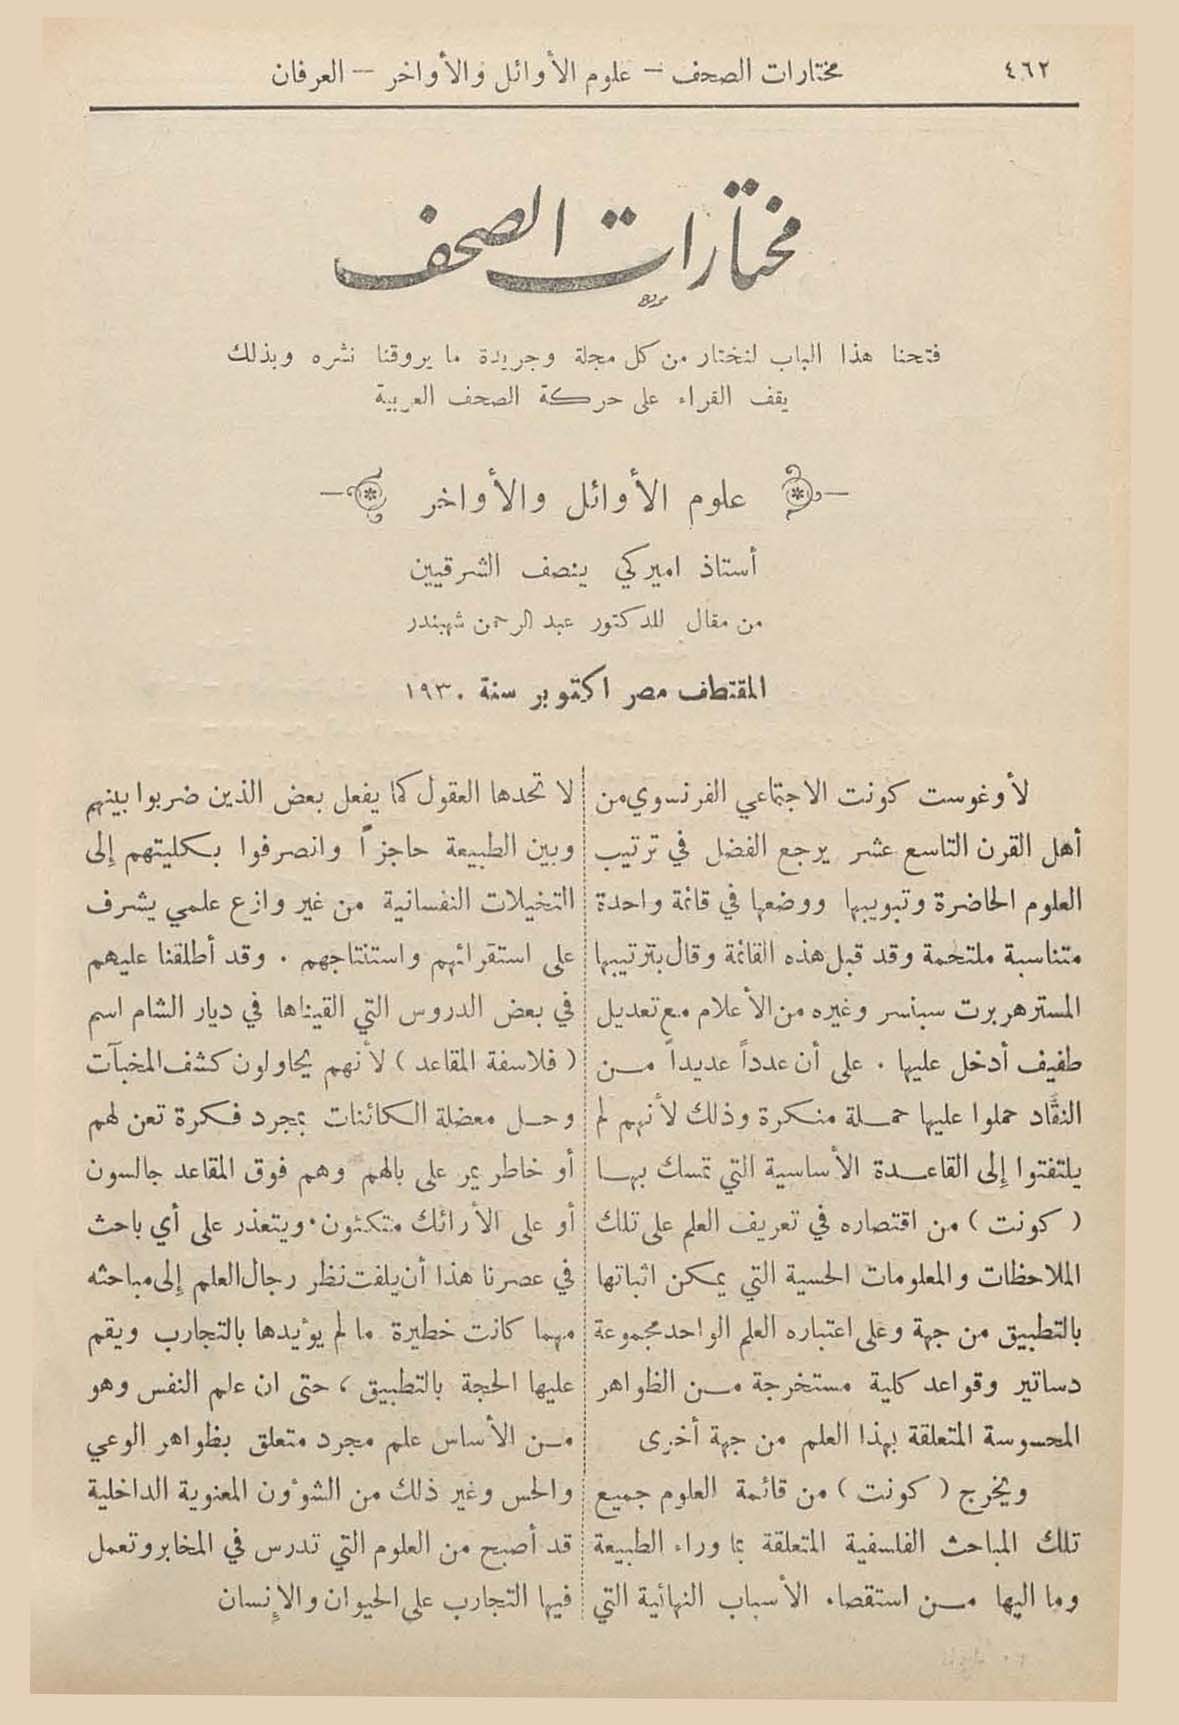 ٤٦٢
مختارات الصحف – علوم الأوائل والأواخر – العرفان
مختارات الصحف
فتحنا هذا الباب لنختار من كل مجلة وجريدة ما يروقنا نشره وبذلك
يقف القراء على حركة الصحف العربية
علوم الأوائل والأواخر
أستاذ اميركي ينصف الشرقيين
من مقال للدكتور عبد الرحمن شهبندر
المقتطف مصر اكتوبر سنة ١٩٣٠
لأوغوست كونت الاجتماعي الفرنسوي من
أهل القرن التاسع عشر يرجع الفضل في ترتيب
العلوم الحاضرة وتبويبها ووضعها في قائمة واحدة
متناسبة ملتحمة وقد قبل هذه القائمة وقال بترتيبها
المستر هربرت سبنسر وغيره من الأعلام مع تعديل
طفيف أدخل عليها . على أن عدداً عديداً من
النقَّاد حملوا عليها حملة منكرة وذلك لأنهم لم
يلتفتوا إلى القاعدة الأساسية التي تمسك بها
( كونت ) من اقتصاره في تعريف العلم على تلك
الملاحظات والمعلومات الحسية التي يمكن اثباتها
بالتطبيق من جهة وعلى اعتباره العلم الواحد مجموعة
دساتير وقواعد كلية مستخرجة من الظواهر
المحسوسة المتعلقة بهذا العلم من جهة أخرى
ويخرج ( كونت ) من قائمة العلوم جميع
تلك المباحث الفلسفية المتعلقة بما وراء الطبيعة
وما اليها من استقصاء الأسباب النهائية التي
لا تحدها العقول كما يفعل بعض الذين ضربوا بينهم
وبين الطبيعة حاجزاً وانصرفوا بكليتهم إلى
التخيلات النفسانية من غير وازع علمي يشرف
على استقرائهم واستنتاجهم . وقد أطلقنا عليهم
في بعض الدروس التي القيناها في ديار الشام اسم
( فلاسفة المقاعد ) لأنهم يحاولون كشف المخبآت
وحل معضلة الكائنات بمجرد فكرة تعن لهم
أو خاطر يمر على بالهم وهم فوق المقاعد جالسون
أو على الأرائك متكئون. ويتعذر على أي باحث
في عصرنا هذا أن يلفت نظر رجال العلم إلى مباحثه
مهما كانت خطيرة ما لم يؤيدها بالتجارب ويقم
عليها الحجة بالتطبيق ، حتى ان علم النفس وهو
من الأساس علم مجرد متعلق بظواهر الوعي
والحس وغير ذلك من الشؤون المعنوية الداخلية
قد أصبح من العلوم التي تدرس في المخابر وتعمل
فيها التجارب على الحيوان والإنسان